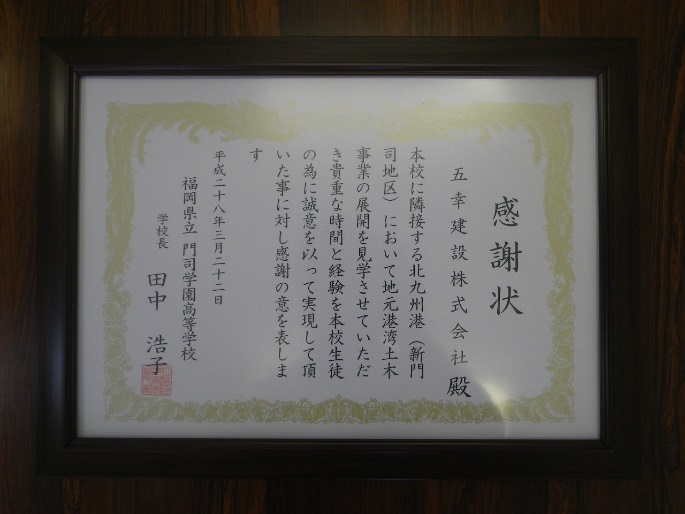 感謝状
五幸建設株式会社 殿
本校に隣接する北九州港（新門
司地区）において地元港湾土木
事業の展開を見学させていただ
き貴重な時間と経験を本校生徒
の為に誠意を以って実現して頂
いた事に対し感謝の意を表しま
す
平成二十八年三月二十二日
福岡県立 門司学園高等学校
学校長 田中 浩子